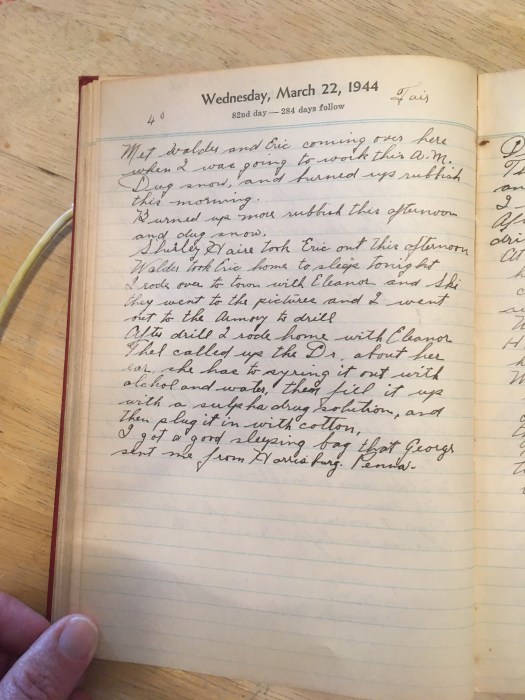 Wednesday, March 22, 1944
82nd day — 284 days follow
4° Fair
Met Walder and Eric coming over here
when I was going to work this A.M.
Dug snow, and burned up rubbish
this morning.
Burned up more rubbish this afternoon
and dug snow.
Shirley Haire took Eric out this afternoon
Walder took Eric home to sleep tonight
I rode over to town with Eleanor and She
they went to the pictures and I went
out to the Armory to drill
After drill I rode home with Eleanor
Thel called up the Dr. about her
ear, she has to syring it out with
alcohol and water, then fill it up
with a sulpha drug solution, and
then plug it in with cotton,
I got a good sleeping bag that George
sent me from Harrisburg. Penna.